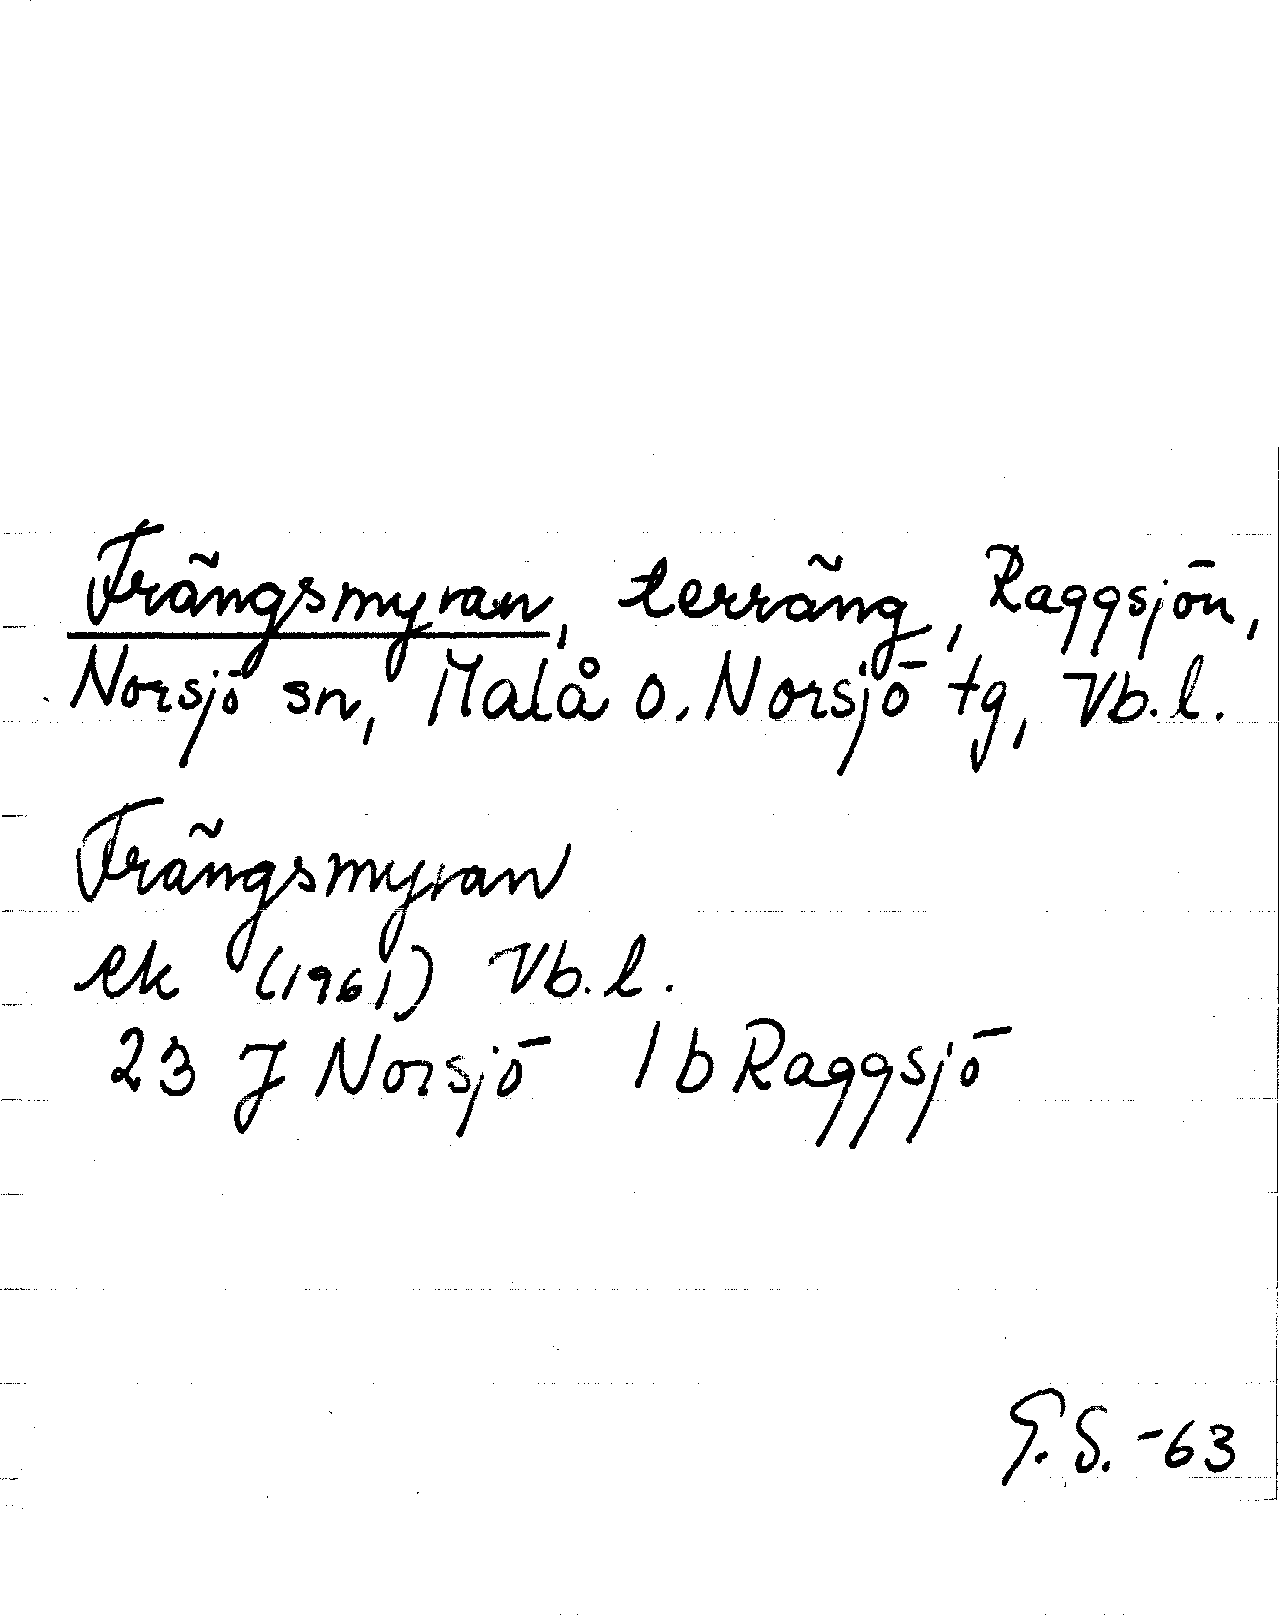 Frängsmyran, terräng, Raggsjön,
Norsjö sn, Malå o. Norsjö tg, Vb. l.
Frängsmyran
ek (1961) Vb. l.
23 J Norsjö 1 b Raggsjö
G. S. -63